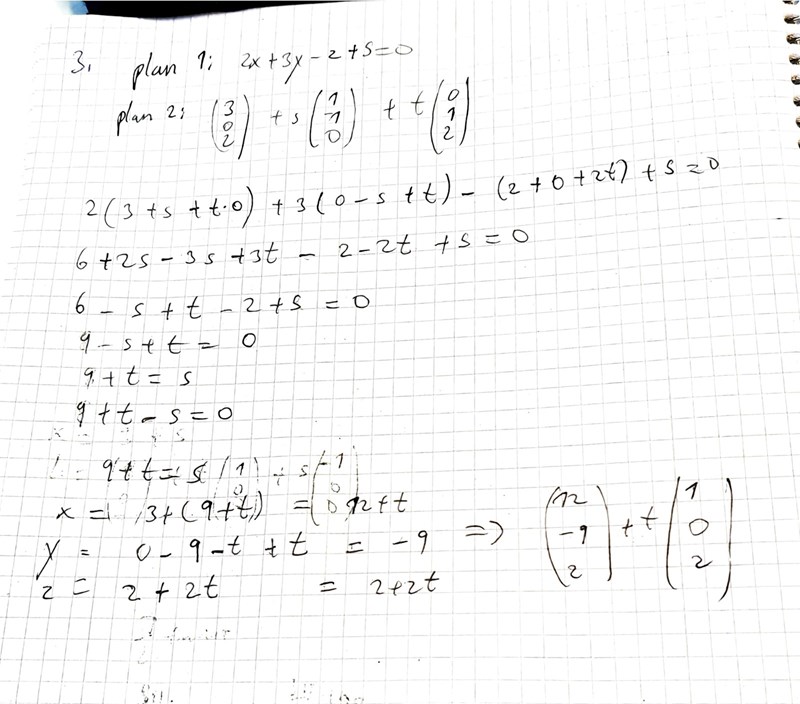 3. plan 1: 2x+3y-z+5=0
plan 2: (3 0 2) + s (1 -1 0) + t (0 1 2)
2(3+s+t·0) + 3(0-s+t) - (2+0+2t) + 5=0
6+2s-3s+3t - 2-2t +5=0
6-s+t-2+5=0
9-s+t=0
9+t=s
9+t-s=0
9+t=s
x = 3+(9+t) = 12+t
y = 0-9-t+t = -9 => (12 -9 2) + t (1 0 2)
z = 2+2t = 2+2t